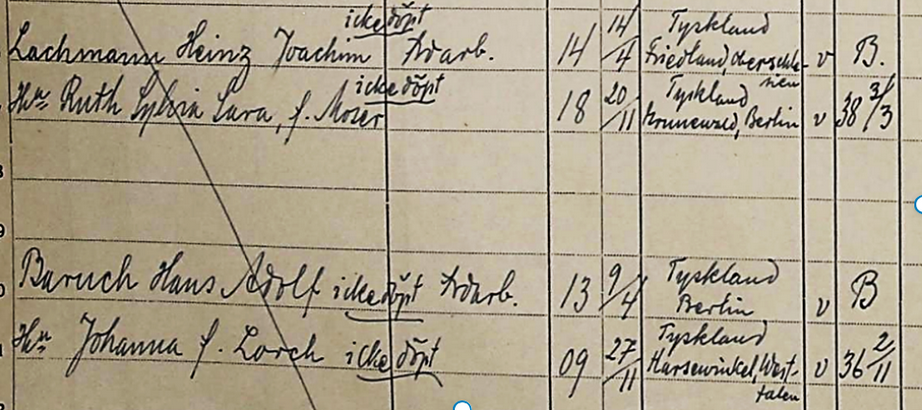 icke döpt 14/ Tyskland
Lachmann Heinz Joachim Trdarb. 14 /4 Friedland, Oberschle- v B.
icke döpt sien
Hu Ruth Sylvia Sara, f. Moser 18 20/11 Tyskland Grunewald, Berlin v 38 3/3
8
9
Baruch Hans Adolf icke döpt Trdarb. 13 9/4 Tyskland
0 Berlin v B
Hu Johanna f. Lorch icke döpt 09 27/11 Tyskland
Harsewinkel, West- v 36 2/11
falen